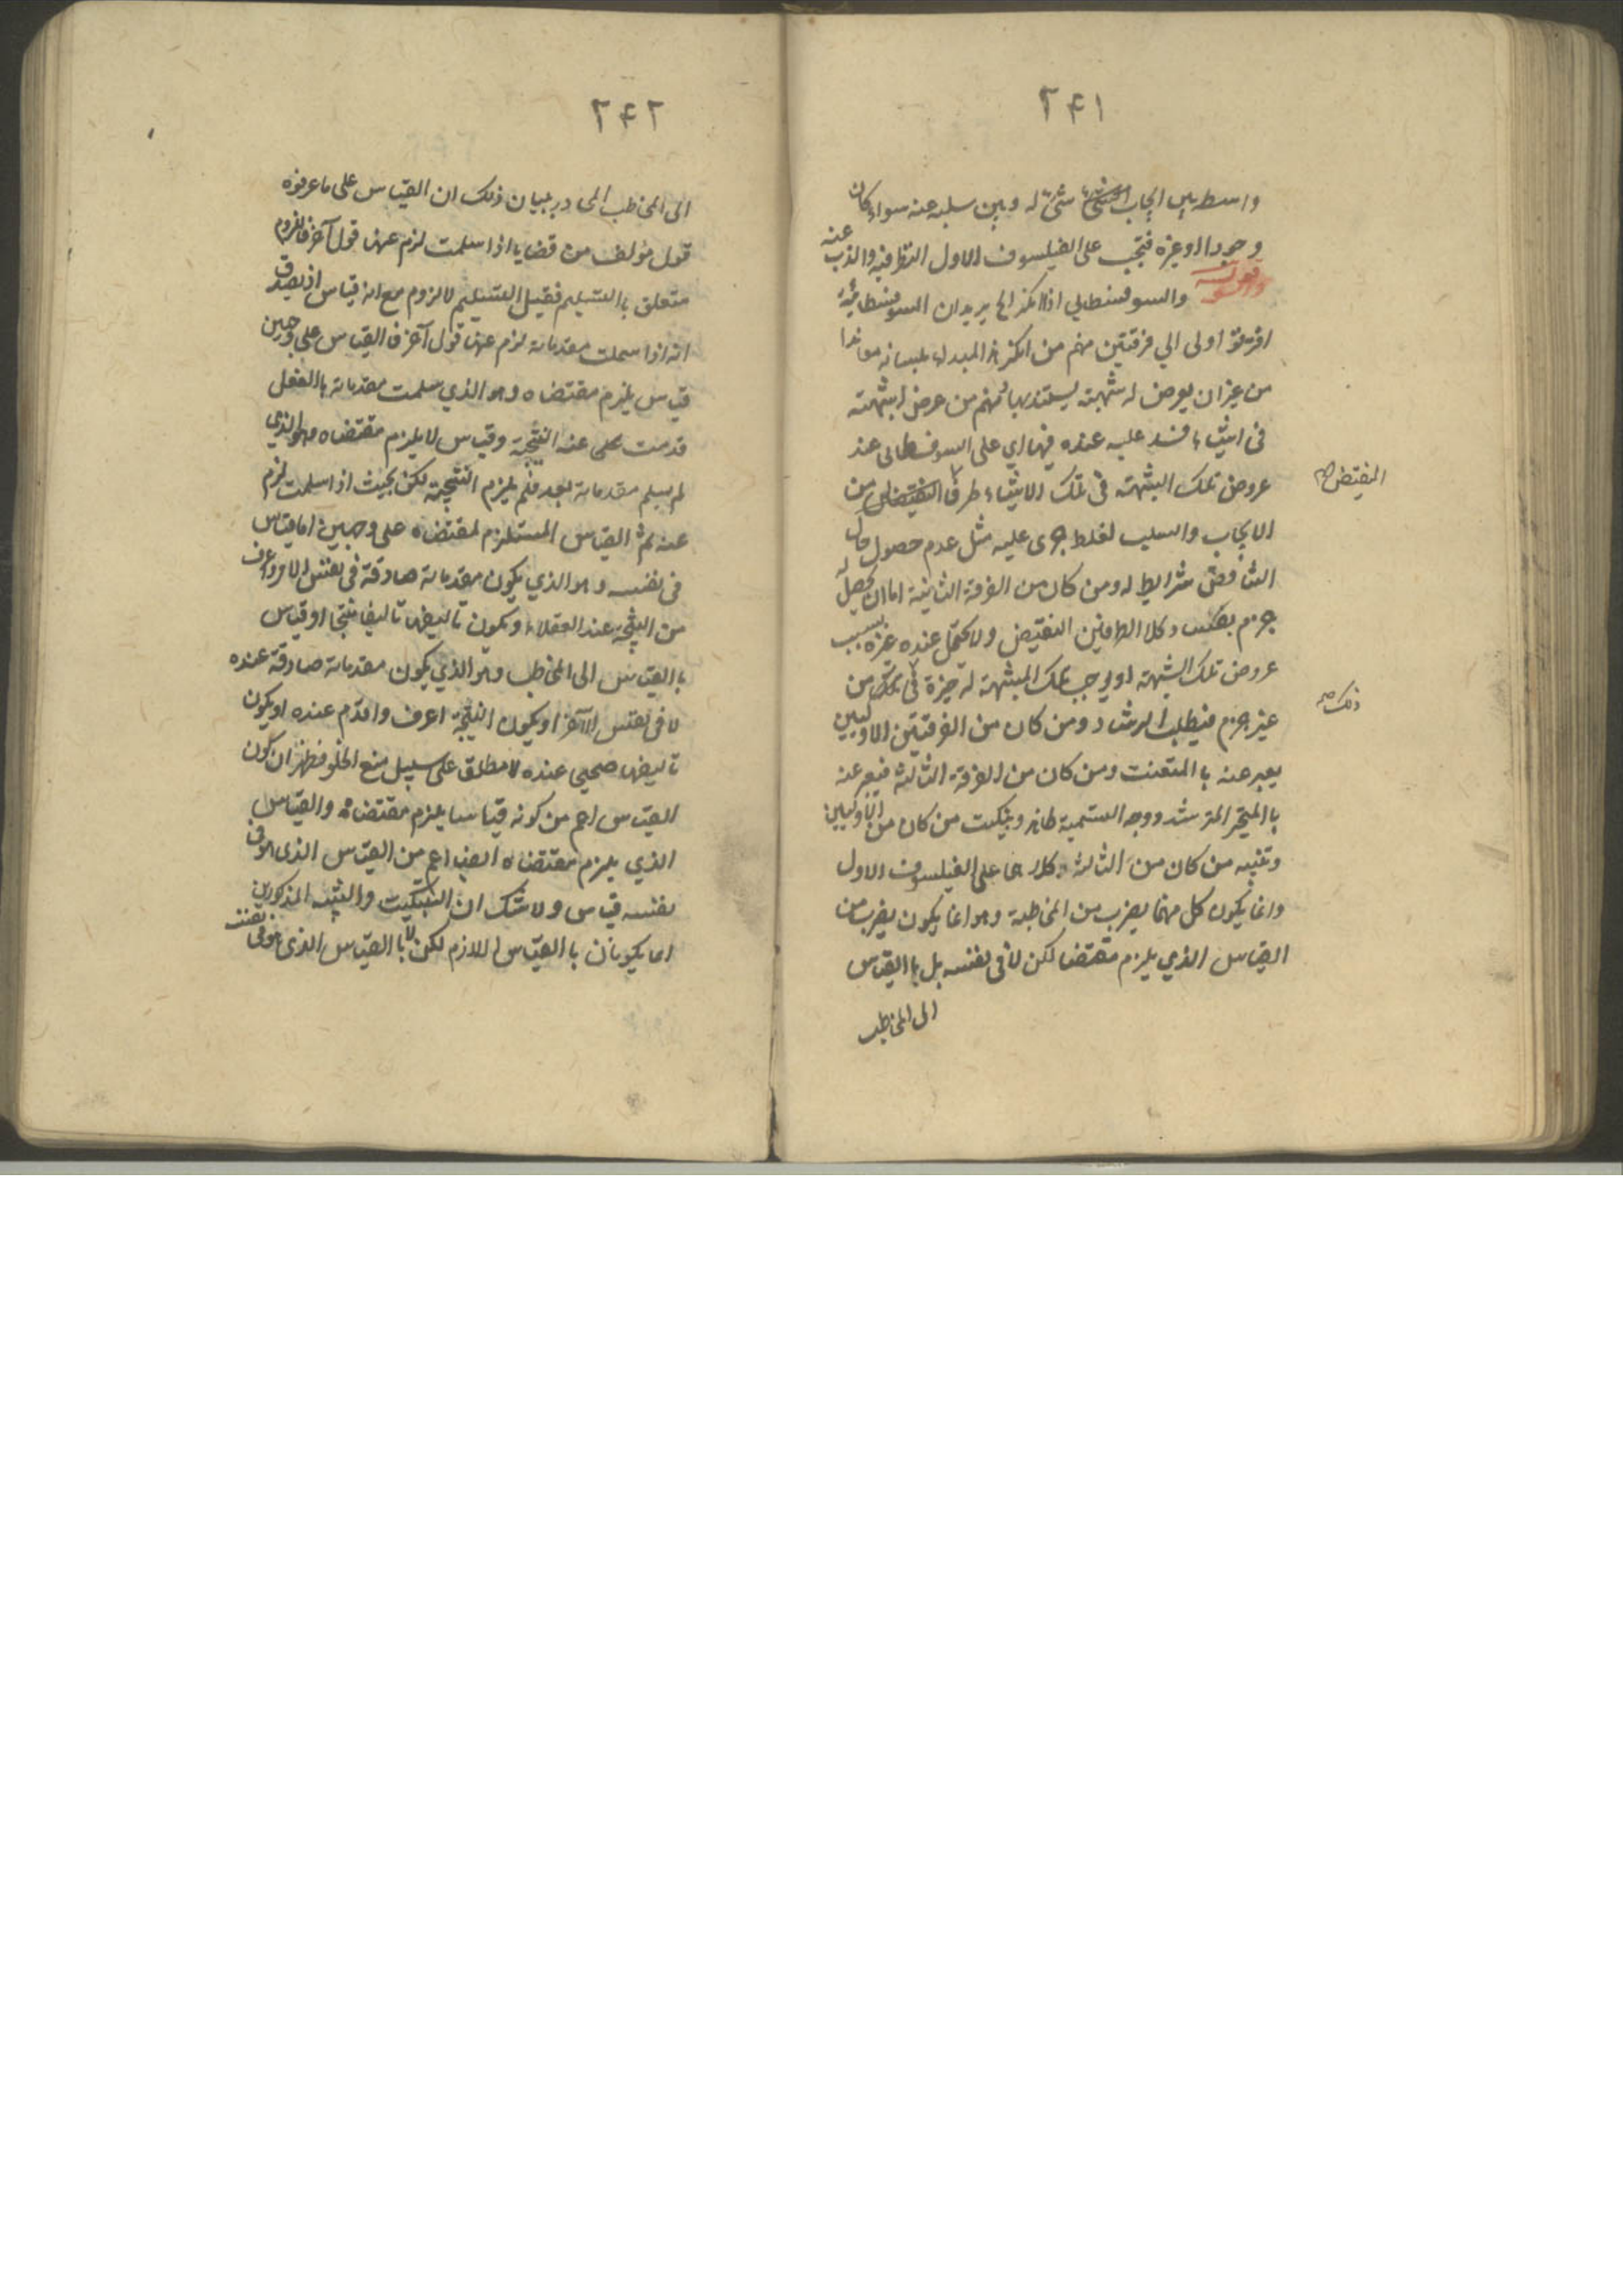 ٢۴١
واسطه بين ايجاب شئ له وبين سلبه عنه سواء كان
وجودا او غيره فتجب على الفيلسوف الاول النظر فيه والذب عنه
قوله والسوفسطايي اذا انكر الخ يريد ان السوفسطائية
افترقوا اولى الي فرقتين منهم من انكر هذا المبدا بلسانه معاندا
من غير ان يعرض له شبهته يستند بها ومنهم من عرض له شبهته
فى اشياء فسد عليه عنده فيها اي على السوفسطايى عند
عروض تلك الشبهته فى تلك الاشياء طرفا النقيض من
النقيض صح
الايجاب والسلب لغلط جرى عليه مثل عدم حصول حال
التناقض وشرايطه له ومن كان من الفرقة الثانية اما ان يحصل له
جزم بفساد كلا الطرفين النقيض ولا يحتمل عنده غيره بسبب
عروض تلك الشبهته او يوجب تلك الشبهته له حيرة فى ذلك من
ذلك صح
غير جزم فيطلب الرشاد ومن كان من الفرقتين الاوليين
يعبر عنه باالمتعنت ومن كان من الفرقة الثالثة فيعبر عنه
باالمتحير المسترشد ووجه التسمية ظاهر وتبكيت من كان من الاوليين
وتنبيه من كان من الثالثة كلاهما على الفيلسوف الاول
وانما يكون كل منهما بضرب من المخاطبة وهو انما يكون بضرب من
القياس الذي يلزم مقتضا لكن لا فى نفسه بل باالقياس
الى المخاطب
٢۴٢
الى المخاطب المحادر بيان ذلك ان القياس على ما عرفوه
قول مؤلف من قضايا اذا سلمت لزم عنها قول آخر فاللزوم
متعلق باالتسليم فقبل التسليم لا لزوم مع انه قياس اذ يصدق
انه اذا سلمت مقدماته لزم عنها قول آخر فالقياس على وجهين
قياس يلزم مقتضاه وهو الذي سلمت مقدماته باالفعل
قدمت على عنه النتيجة وقياس لا يلزم مقتضاه وهو الذي
لم يسلم مقدماته بعد فلم يلزم النتيجة لكن بحيث اذا سلمت لزم
عنه ثم القياس المستلزم لمقتضاه على وجهين اما قياس
فى نفسه وهو الذي يكون مقدماته صادقة فى نفس الامر واعرف
من النتيجة عند العقلاء ويكون تاليفها تاليفا منتجا او قياس
باالقياس الى المخاطب وهو الذي يكون مقدماته صادقة عنده
لا فى نفس الآخر او يكون النتيجة اعرف واقدم عنده او يكون
تاليفها صحيحى عنده لا مطلق على سبيل منع الخلو فظهر ان كون
القياس اعم من كونه قياسا يلزم مقتضاه والقياس
الذي يلزم مقتضاه ايضا اعم من القياس الذى هو فى
نفسه قياس ولا شك ان التبكيت والتنبيه المذكورين
انما يكونان باالقياس اللازم لكن لا باالقياس الذى هو فى نفسه